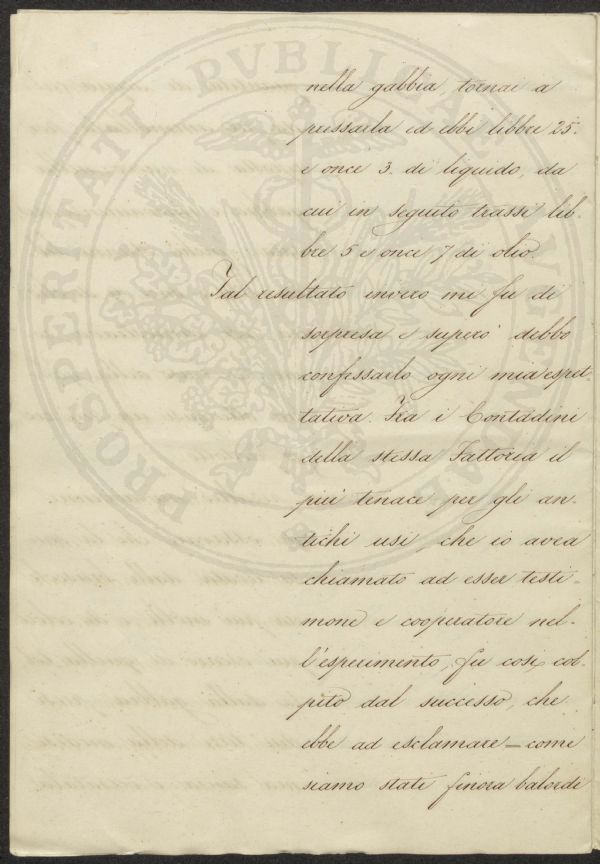 PROSPERITATI PVBLICAE
nella gabbia, tornai a
pressarla ed ebbi libbre 25.
e once 3. di liquido, da
cui in seguito trassi lib-
bre 5 e once 7 di olio.
Tal resultato invero mi fu di
sorpresa e superò debbo
confessarlo ogni mia espet-
tativa. Fra i Contadini
della stessa Fattoria il
più tenace per gli an-
tichi usi, che io avea
chiamato ad esser testi-
mone e cooperatore nel-
l'esperimento, fu così col-
pito dal successo, che
ebbe ad esclamare — come
siamo stati finora balordi